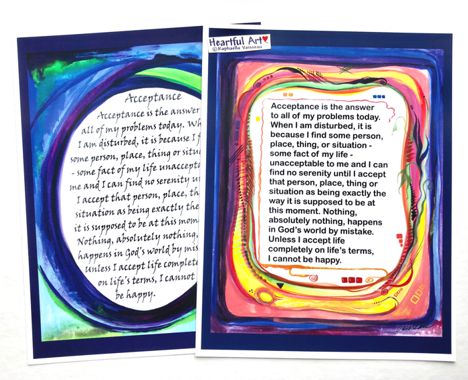 Acceptance
Acceptance is the answer
all of my problems today. Wh
I am disturbed, it is because I f
some person, place, thing or situ
- some fact of my life - unaccepta
me and I can find no serenity u
I accept that person, place, th
situation as being exactly the
it is supposed to be at this mom
Nothing, absolutely nothing,
happens in God's world by mis
Unless I accept life complete
on life's terms, I cannot
be happy.
Heartful Art
© Raphaella Vaisseau
Acceptance is the answer
to all of my problems today.
When I am disturbed, it is
because I find some person,
place, thing, or situation -
some fact of my life -
unacceptable to me and I can
find no serenity until I accept
that person, place, thing or
situation as being exactly the
way it is supposed to be at
this moment. Nothing,
absolutely nothing, happens
in God's world by mistake.
Unless I accept life
completely on life's terms,
I cannot be happy.